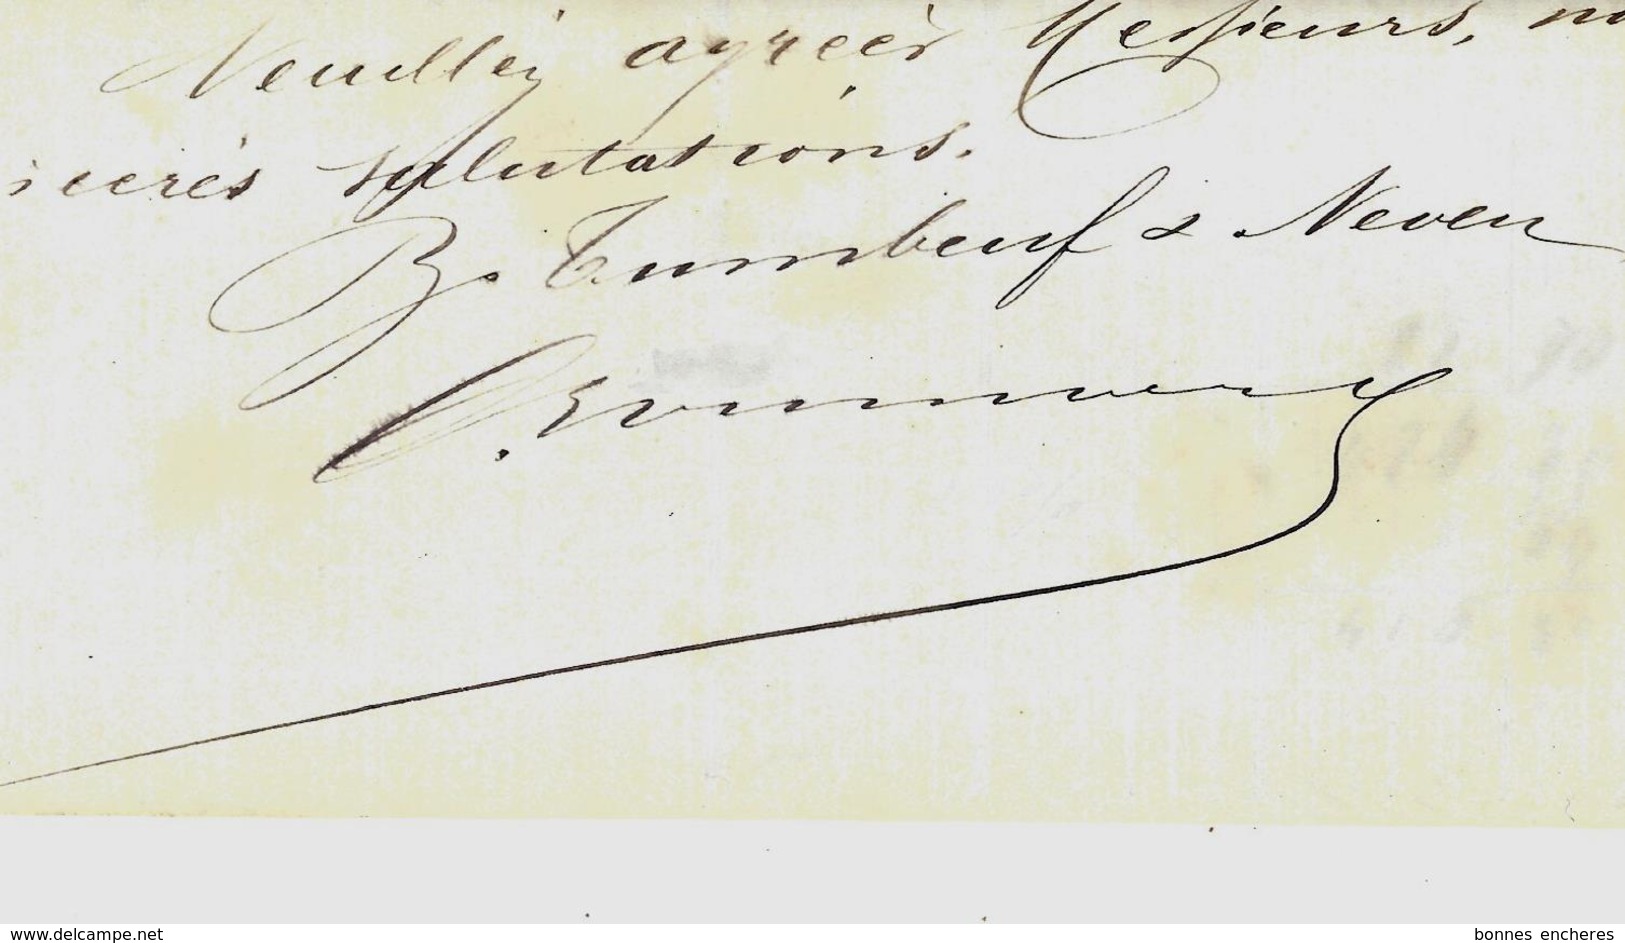 Veuillez agréer Messieurs, no
incères salutations.
B. Tumbeuf & Neveu
www.delcampe.net
bonnes encheres